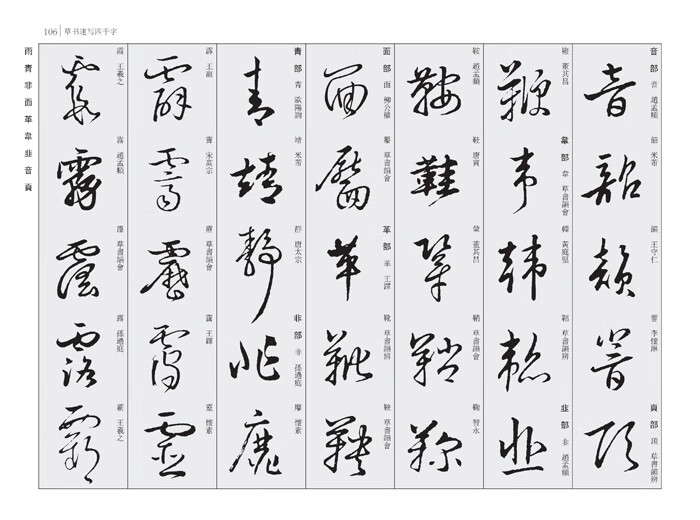 106 草书速写四千字
雨 青 非 面 革 韋 韭 音 頁
霞 王羲之
霧 趙孟頫
霪 草書韻會
露 孫過庭
霸 王羲之
霹 王寵
霽 宋高宗
靂 草書韻會
靄 王鐸
靈 懷素
青部 青 歐陽詢
靖 米芾
靜 唐太宗
非部 非 孫過庭
靡 懷素
面部 面 柳公權
靨 草書韻會
革部 革 王鐸
靴 草書韻辨
鞅 草書韻會
鞍 趙孟頫
鞋 唐寅
鞏 董其昌
鞘 草書韻會
鞠 智永
鞭 董其昌
韋部 韋 草書韻會
韓 黃庭堅
韜 草書韻辨
韭部 韭 趙孟頫
音部 音 趙孟頫
韶 米芾
韻 王守仁
響 李懷琳
頁部 頂 草書韻辨